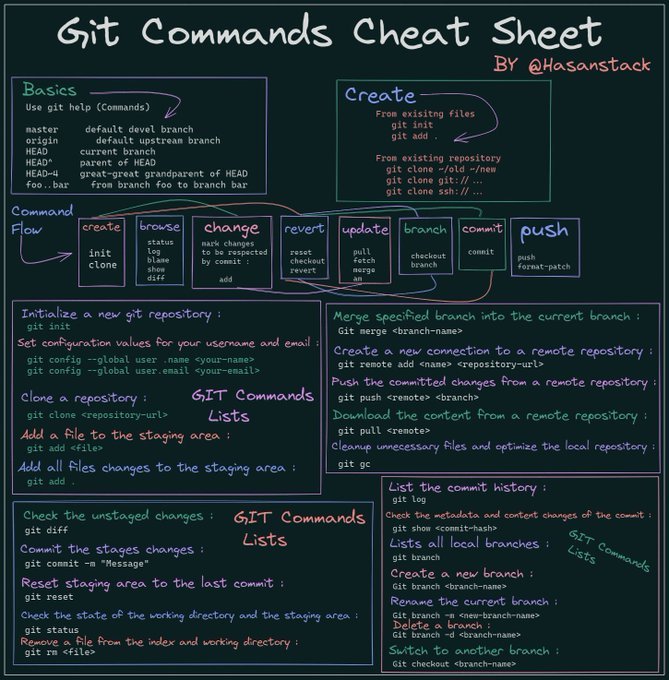 Git Commands Cheat Sheet
BY @Hasanstack
Basics
Use git help (Commands)
master default devel branch
origin default upstream branch
HEAD current branch
HEAD^ parent of HEAD
HEAD~4 great-great grandparent of HEAD
foo..bar from branch foo to branch bar
Create
From exisitng files
git init
git add .
From existing repository
git clone ~/old ~/new
git clone git://...
git clone ssh://...
Command
Flow
create
init
clone
browse
status
log
blame
show
diff
change
mark changes
to be respected
by commit :
add
revert
reset
checkout
revert
update
pull
fetch
merge
am
branch
checkout
branch
commit
commit
push
push
format-patch
Initialize a new git repository :
git init
Set configuration values for your username and email :
git config --global user .name <your-name>
git config --global user.email <your-email>
Clone a repository :
git clone <repository-url>
Add a file to the staging area :
git add <file>
Add all files changes to the staging area :
git add .
GIT Commands
Lists
Merge specified branch into the current branch :
Git merge <branch-name>
Create a new connection to a remote repository :
git remote add <name> <repository-url>
Push the committed changes from a remote repository :
git push <remote> <branch>
Download the content from a remote repository :
git pull <remote>
Cleanup unnecessary files and optimize the local repository :
git gc
Check the unstaged changes :
git diff
Commit the stages changes :
git commit -m "Message"
Reset staging area to the last commit :
git reset
Check the state of the working directory and the staging area :
git status
Remove a file from the index and working directory :
git rm <file>
GIT Commands
Lists
List the commit history :
git log
Check the metadata and content changes of the commit :
git show <commit-hash>
Lists all local branches :
git branch
Create a new branch :
Git branch <branch-name>
Rename the current branch :
Git branch -m <new-branch-name>
Delete a branch :
Git branch -d <branch-name>
Switch to another branch :
Git checkout <branch-name>
GIT Commands
Lists